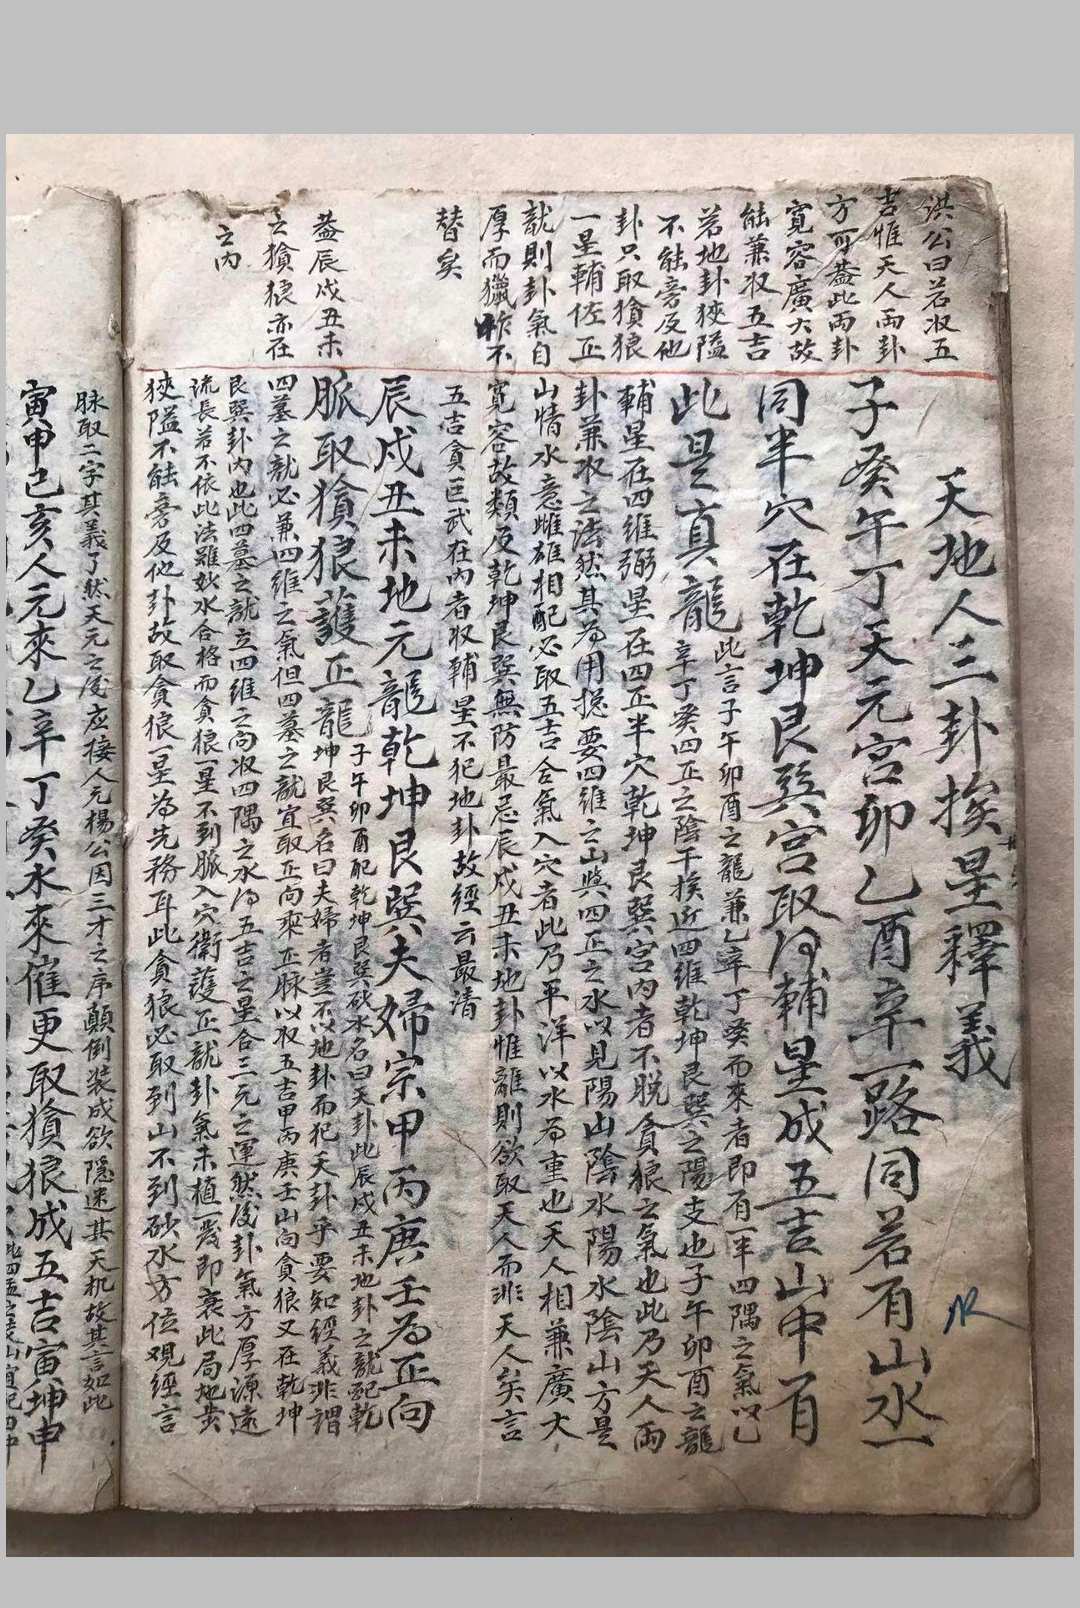 洪公曰若收五
吉惟天人兩卦
方可葢此兩卦
寬容廣大故
能兼收五吉
若地卦狹隘
不能旁及他
卦只取貪狼
一星輔佐正
龍則卦氣自
厚而獵祚不
替矣
葢辰戌丑未
之貪狼亦在
之內
天地人三卦挨星釋義
子癸午丁天元宮卯乙酉辛一路同若有山水一
同半穴在乾坤艮巽宮取得輔星成五吉山中有
此是真龍
此言子午卯酉之龍兼乙辛丁癸而來者即有一半四隅之氣以乙
辛丁癸四正之陰干挨近四維乾坤艮巽之陽支也子午卯酉之龍
輔星在四維弼星在四正半穴乾坤艮巽宮內者不脫貪狼之氣也此乃天人兩
卦兼收之法然其為用揔要四維之山與四正之水以見陽山陰水陽水陰山方是
山情水意雌雄相配必取五吉合氣入穴者此乃平洋以水為重也天人相兼廣大
寬容故類及乾坤艮巽無防最忌辰戌丑未地卦惟離則欲取天人而非天人矣言
五吉貪巨武在內者取輔星不犯地卦故經云最清
辰戌丑未地元龍乾坤艮巽夫婦宗甲丙庚壬為正向
脈取貪狼護正龍
子午卯酉配乾坤艮巽砂水名曰天卦此辰戌丑未地卦之龍配乾
坤艮巽名曰夫婦者豈不以地卦而犯天卦乎要知經義非謂
四墓之龍必兼四維之氣但四墓之龍宜取正向乘正脉以收五吉甲丙庚壬山向貪狼又在乾坤
艮巽卦內也此四墓之龍立四維之向收四隅之水得五吉之星合三元之運然後卦氣方厚源遠
流長若不依此法雖砂水合格而貪狼一星不到脈入穴衛護正龍卦氣未植一發即衰此局地卦
狹隘不能旁及他卦故取貪狼一星為先務耳此貪狼必取到山不到砂水方位觀經言
脉取二字其義了然天元之後应接人元楊公因三才之序顛倒裝成欲隱迷其天机故其言如此
寅申巳亥人元來乙辛丁癸水來催更取貪狼成五吉寅坤申